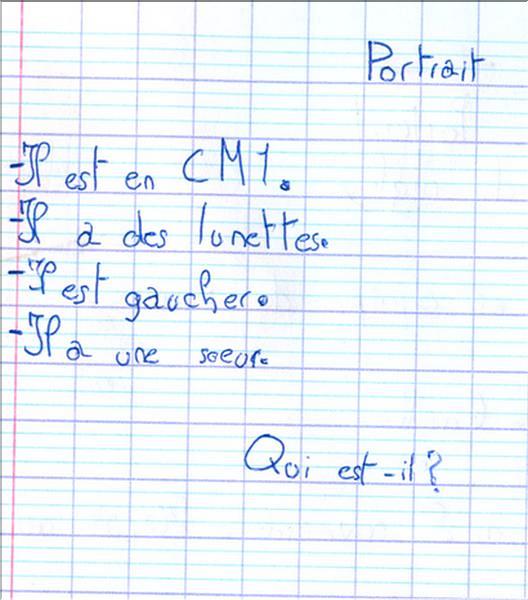 Portrait
-Il est en CM1.
-Il a des lunettes.
-Il est gaucher.
-Il a une soeur.
Qui est-il?